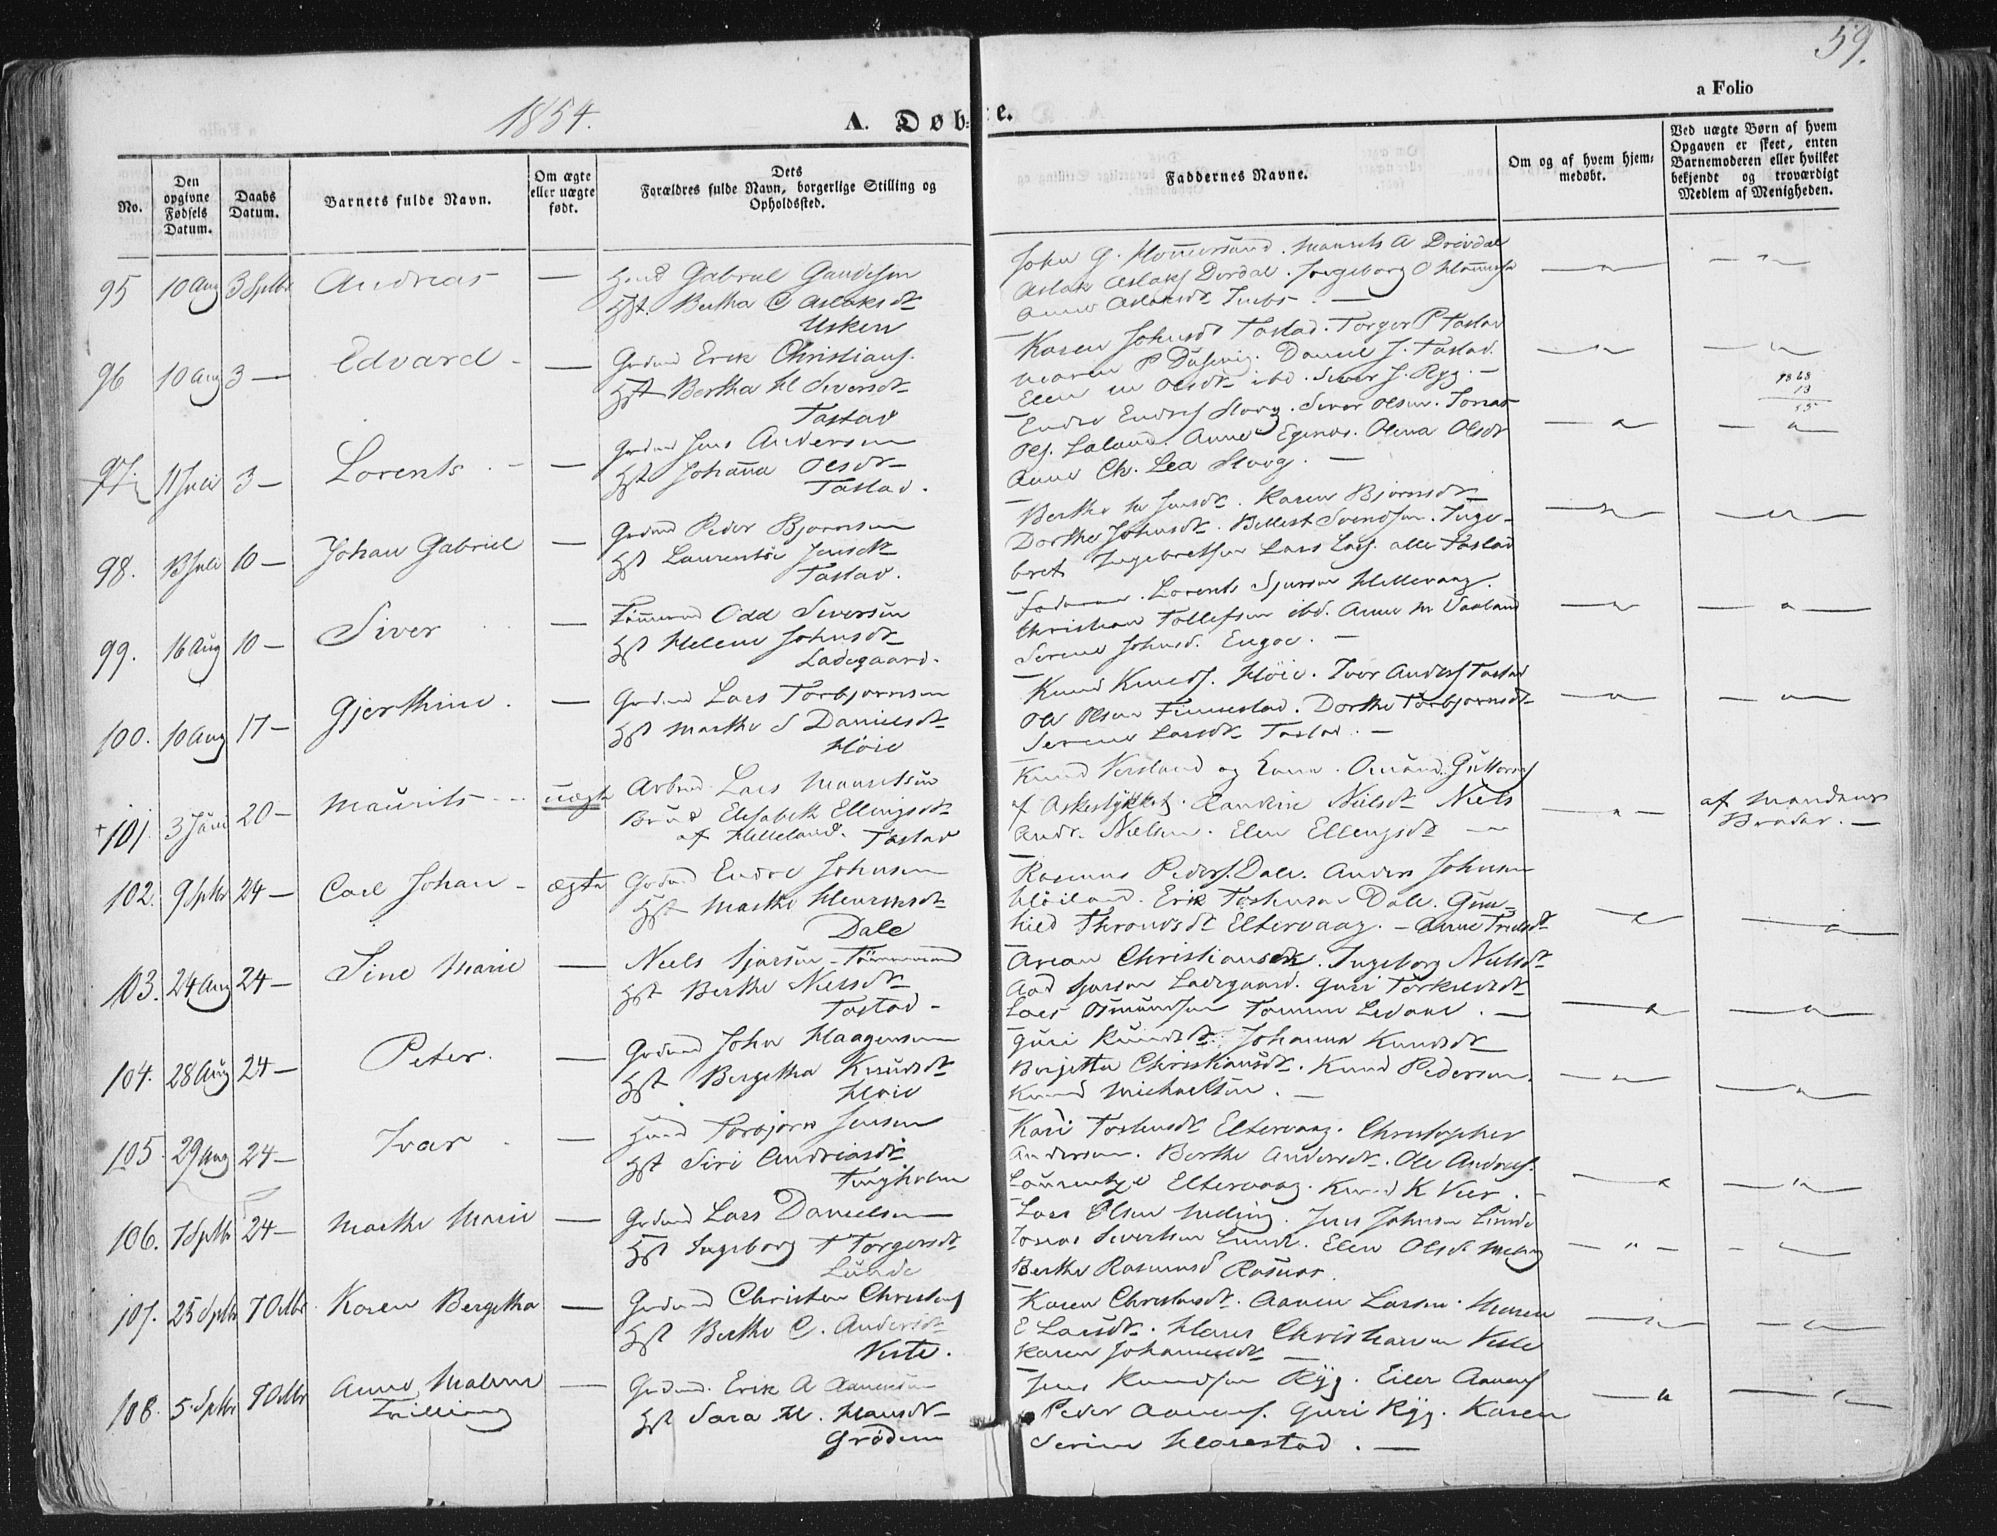 59.
1854.
A. Døbte.
a Folio
No.
Den opgivne Fødsels Datum.
Daabs Datum.
Barnets fulde Navn.
Om ægte eller uægte født.
Dets Forældres fulde Navn, borgerlige Stilling og Opholdssted.
Faddernes Navne.
Om og af hvem hjemmedøbt.
Ved uægte Børn af hvem Opgaven er skeet, enten Barnemoderen eller hvilket bekjendt og troværdigt Medlem af Menigheden.
95 10 Aug 3 Septbr Andreas —
Gabriel Gaudesen
Hst. Bertha C Aslaksdt
Usken
John G. Hommersand. Maurits A Dreivdal
Aslak Aslaks Dirdal. Ingeborg O
Anne Aslaksdt
96 10 Aug 3 — Edvard — —
Grdmd Erik Christians.
Hst Bertha M Siversdt
Tastad
Karen Johnsdt Tastad. Torger P Tastad
Maren P Dusevig. Daniel J. Tastad.
Elen M Olsdt ibd. Siver J. Ryg. —
1868
13
55
97. 11 Juli 3 — Lorents — —
Grdmd Jens Andersen
Hst Johanna Olsdt
Tastad.
Endre Endres Haug. Siver Olsen. Tonas
Ols. Laland. Anne Egenes. Olena Olsdt
Anne Ch. Lea Haug. —
98. 13 Juli 10 — Johan Gabriel —
Grdmd Peder Bjørnsen
Hst Laurentse Jensdt
Tastad.
Berthe M Jensdt. Karen Bjørnsdt
Dorthe Johnsdt. Bellest Svendsen. Inge-
bret Ingebretsen Lars Lars. alle Tastad
99. 16 Aug 10 — Siver —
Tømmermd Odd Siversen
Hst Helene Johnsdt
Ladegaard.
Faderen. Lorents Sjursen Hillevaag.
Christian Tollefsen ibd. Anne M Vaaland
Serene Johnsd. Engøe. —
100. 10 Aug 17 — Gjerthine. —
Grdmd Lars Torbjørnsen
Hst Marthe S Danielsdt
Høie
Knud Knuds. Høie. Iver Anders Tastad
Ole Olsen Finnestad. Dorthe Torbjørnsdt
Serene Larsdt Tastad. —
+ 101. 3 Juni 20 — Maurits — uægte
Arbmd Lars Mauritsen
Brud Elisabeth Ellingsdt
af Helleland. Tastad
Knud Versland og Kone. Omund Guttorms
af Askestykket. Randine Nielsdt Niels
Andr. Nielsen. Elen Ellingsdt —
af Mandens
Broder. —
102. 9 Sptbr 24 — Carl Johan — ægte
Grdmd Endre Johnsen
Hst Marthe Henriksdt
Dale
Rasmus Peders. Dale. Anders Johnsen
Høiland. Erik Tostensen Dale. Gun-
hild Throndsdt Eltervaag. — Anne Trulsdt
103. 24 Aug 24 — Sine Marie —
Niels Sjursen — Tømmermand
Hst Berthe Nielsdt
Tastad —
Arian Christiansdt. Ingeborg Nielsdt
Aad Sjursen Ladegaard. Guri Torkildsdt
Lars Osmundsen Tommen Ledaal. —
104. 28 Aug 24 — Peter. —
Grdmd John Haagensen
Hst Bergetha Knudsdt
Høie
Guri Knudsdt. Johanna Knudsdt
Bergetta Christiansdt. Knud Pedersen.
Knud Michaelsen. —
105. 29 Aug 24 — Ivar —
Torbjørn Jensen
Hst Siri Andreasdt
Tingholm
Kari Tostensdt Eltervaag. Christopher
Andersen. Berthe Andersdt. Ole Andreas.
Eltervaag. Knud K Veer. —
106. 7 Sptbr 24 — Marthe Marie —
Grdmd Lars Danielsen
Hst Ingeborg T Torgersdt
Lunde
Lars Olsen Meling. Jens Johnsen Lunde
Tonas Sivertsen Lunde. Elen Olsdt Meling
Berthe Rasmusd
107. 25 Sptbr 7 Octbr. Karen Bergetha —
Grdmd Christen Christens
Hst Berthe C. Andersdt
Viste.
Karen Christensdt. Aanen Larsen. Maren
E Larsdt. Hans Christiansen Viste
Karen Johannesdt
108. 5 Sptbr 7 Octbr Anne Malene —
Tvilling
Grdmd. Erik A Aanensen
Hst Sara M. Hansdt
Grødem
Jens Knudsen Ryg. Eiler Aanens
Peder Aanens. Guri Ryg. Karen
Serine Harestad. —